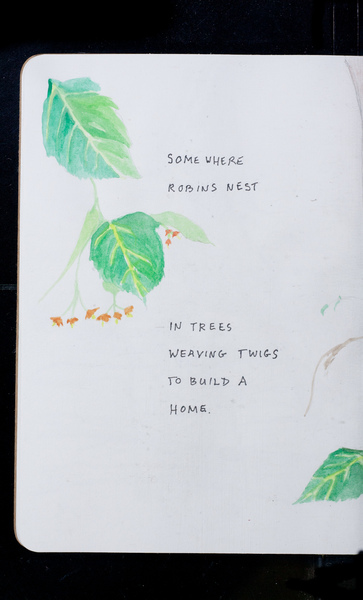 SOMEWHERE
ROBINS NEST
IN TREES
WEAVING TWIGS
TO BUILD A
HOME.